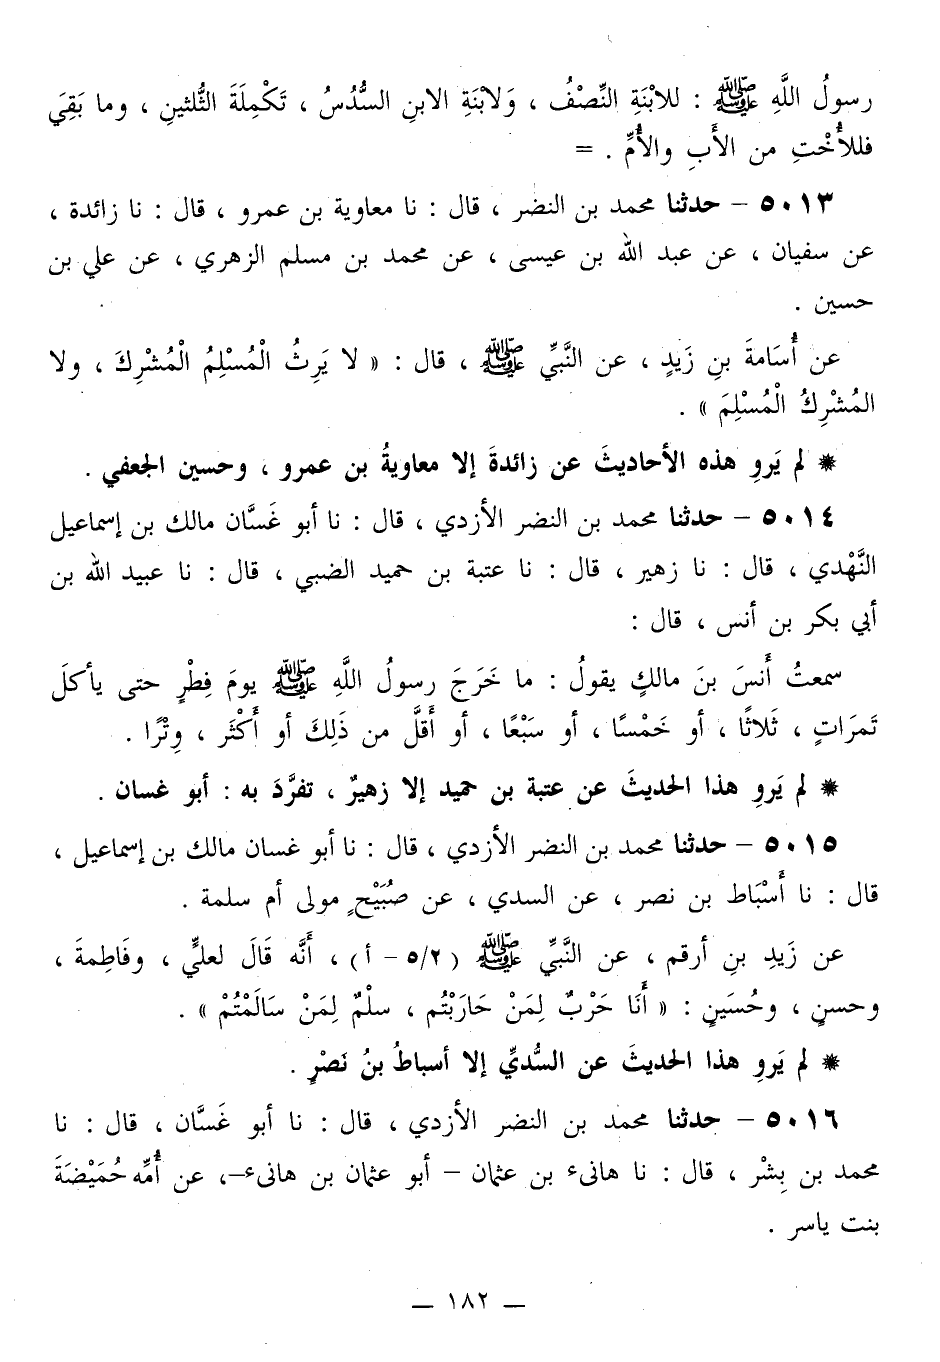 رسولُ اللَّهِ ﷺ : للابْنَةِ النِّصْفُ ، وَلابْنَةِ الابنِ السُّدُسُ ، تَكْمِلَةَ الثُّلثينِ ، وما بَقِيَ
فللأُخْتِ من الأَبِ والأُمِّ . =
٥٠١٣ – حدثنا محمد بن النضر ، قال : نا معاوية بن عمرو ، قال : نا زائدة ،
عن سفيان ، عن عبد الله بن عيسى ، عن محمد بن مسلم الزهري ، عن علي بن
حسين .
عن أُسَامةَ بنِ زَيدٍ ، عن النَّبِّي ﷺ ، قال : « لا يَرِثُ الْمُسْلِمُ الْمُشْرِكَ ، ولا
المُشْرِكُ الْمُسْلِمَ » .
* لم يَروِ هذه الأحاديثَ عن زائدةَ إلا معاويةُ بن عمرو ، وحسين الجعفي .
٥٠١٤ – حدثنا محمد بن النضر الأزدي ، قال : نا أبو غَسَّان مالك بن إسماعيل
النَّهْدي ، قال : نا زهير ، قال : نا عتبة بن حميد الضبي ، قال : نا عبيد الله بن
أبي بكر بن أنس ، قال :
سمعتُ أَنسَ بنَ مالكٍ يقولُ : ما خَرَجَ رسولُ اللَّهِ ﷺ يومَ فِطْرٍ حتى يأكلَ
تَمرَاتٍ ، ثَلاثًا ، أو خَمْسًا ، أو سَبْعًا ، أو أَقلَّ من ذَلِكَ أو أَكْثَر ، وِتْرًا .
* لم يَروِ هذا الحديثَ عن عتبة بن حميد إلا زهيرٌ ، تفرَّدَ به : أبو غسان .
٥٠١٥ – حدثنا محمد بن النضر الأزدي ، قال : نا أبو غسان مالك بن إسماعيل ،
قال : نا أَسْبَاط بن نصر ، عن السدي ، عن صُبَيْحٍ مولى أم سلمة .
عن زَيدِ بنِ أرقم ، عن النَّبِّي ﷺ (٥/٢ – أ) ، أَنَّه قَالَ لعليٍّ ، وفَاطِمةَ ،
وحسنٍ ، وحُسَينٍ : « أَنَا حَرْبٌ لِمَنْ حَارَبْتُم ، سلْمٌ لِمَنْ سَالَمْتُمْ » .
* لم يَروِ هذا الحديثَ عن السُّديِّ إلا أسباطُ بنُ نَصْرٍ .
٥٠١٦ – حدثنا محمد بن النضر الأزدي ، قال : نا أبو غَسَّان ، قال : نا
محمد بن بِشْر ، قال : نا هانىء بن عثمان – أبو عثمان بن هانىء–، عن أُمِّه حُمَيْضَةَ
بنت ياسر .
– ١٨٢ –